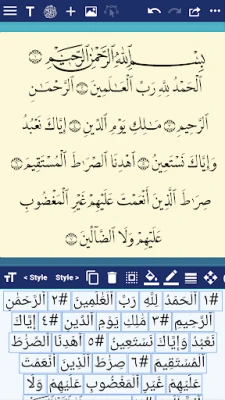 T
بِسْمِ ٱللَّهِ ٱلرَّحْمَٰنِ ٱلرَّحِيمِ
ٱلْحَمْدُ لِلَّهِ رَبِّ ٱلْعَٰلَمِينَ ٱلرَّحْمَٰنِ
ٱلرَّحِيمِ مَٰلِكِ يَوْمِ ٱلدِّينِ إِيَّاكَ نَعْبُدُ
وَإِيَّاكَ نَسْتَعِينُ ٱهْدِنَا ٱلصِّرَٰطَ ٱلْمُسْتَقِيمَ
صِرَٰطَ ٱلَّذِينَ أَنْعَمْتَ عَلَيْهِمْ غَيْرِ ٱلْمَغْضُوبِ
عَلَيْهِمْ وَلَا ٱلضَّآلِّينَ
TT < Style Style >
#١ ٱلْحَمْدُ لِلَّهِ رَبِّ ٱلْعَٰلَمِينَ #٢ ٱلرَّحْمَٰنِ
ٱلرَّحِيمِ #٣ مَٰلِكِ يَوْمِ ٱلدِّينِ #٤ إِيَّاكَ
نَعْبُدُ وَإِيَّاكَ نَسْتَعِينُ #٥ ٱهْدِنَا ٱلصِّرَٰطَ
ٱلْمُسْتَقِيمَ #٦ صِرَٰطَ ٱلَّذِينَ أَنْعَمْتَ
عَلَيْهِمْ غَيْرِ ٱلْمَغْضُوبِ عَلَيْهِمْ وَلَا